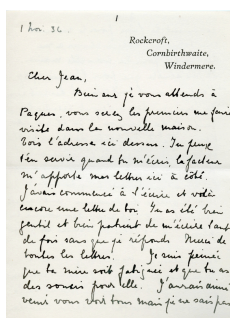 1 Nov. 36.
Rockcroft,
Cornbirthwaite,
Windermere.
Cher Jean,
Bien sur je vous attends à
Paques, vous serez les premiers me faire
visite dans la nouvelle maison.
Vois l'adresse ici dessus. Tu peux
t'en servir quand tu m'écris, le facteur
m'apporte mes lettres ici à côté.
J'avais commencé à t'écrire et voilà
encore une lettre de toi. Tu as été bien
gentil et bien patient de m'écrire tant
de fois sans que je réponds. Merci de
toutes les lettres. Je suis peinée
que ta mère soit fatiguée et que tu as
des soucis pour elle. J'aurais aimé
venir vous voir tous mais je ne sais pas